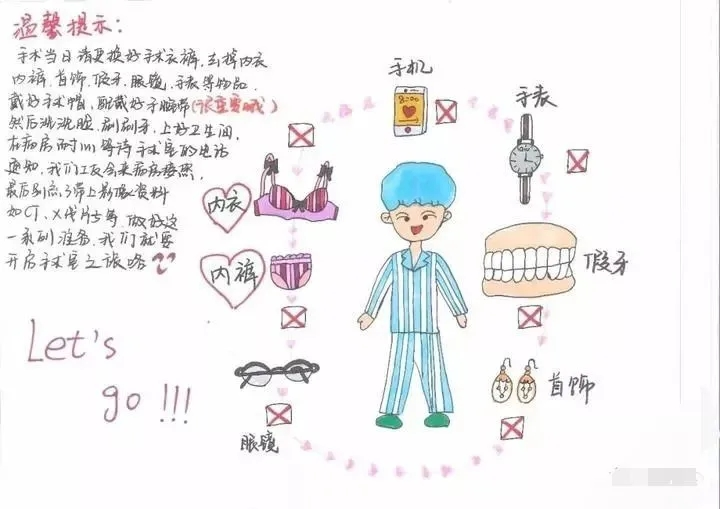 温馨提示:
手术当日请更换好手术衣裤,去掉内衣
内裤、首饰、假牙、眼镜、手表等物品,
戴好手术帽,配戴好手腕带(很重要哦)
然后洗洗脸,刷刷牙,上好卫生间,
在病房耐心等待手术室的电话
通知,我们工友会来病房接您,
最后别忘了带上影像资料
如CT、X线片等,做好这
一系列准备,我们就要
开启手术室之旅咯
手机
手表
内衣
内裤
假牙
首饰
眼镜
Let's
go!!!
8:00